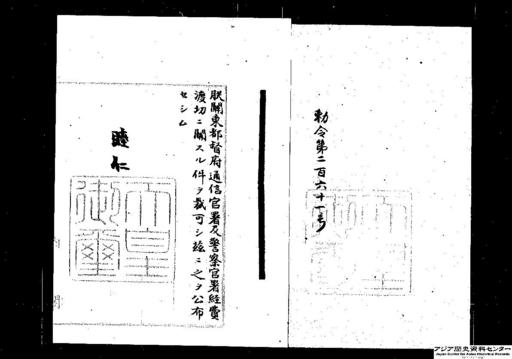 勅令第二百六十一号
朕關東都督府通信官署及警察官署經費
渡切ニ關スル件ヲ裁可シ玆ニ之ヲ公布
セシム
睦仁
天皇御璽
アジア歴史資料センター
Japan Center for Asian Historical Records